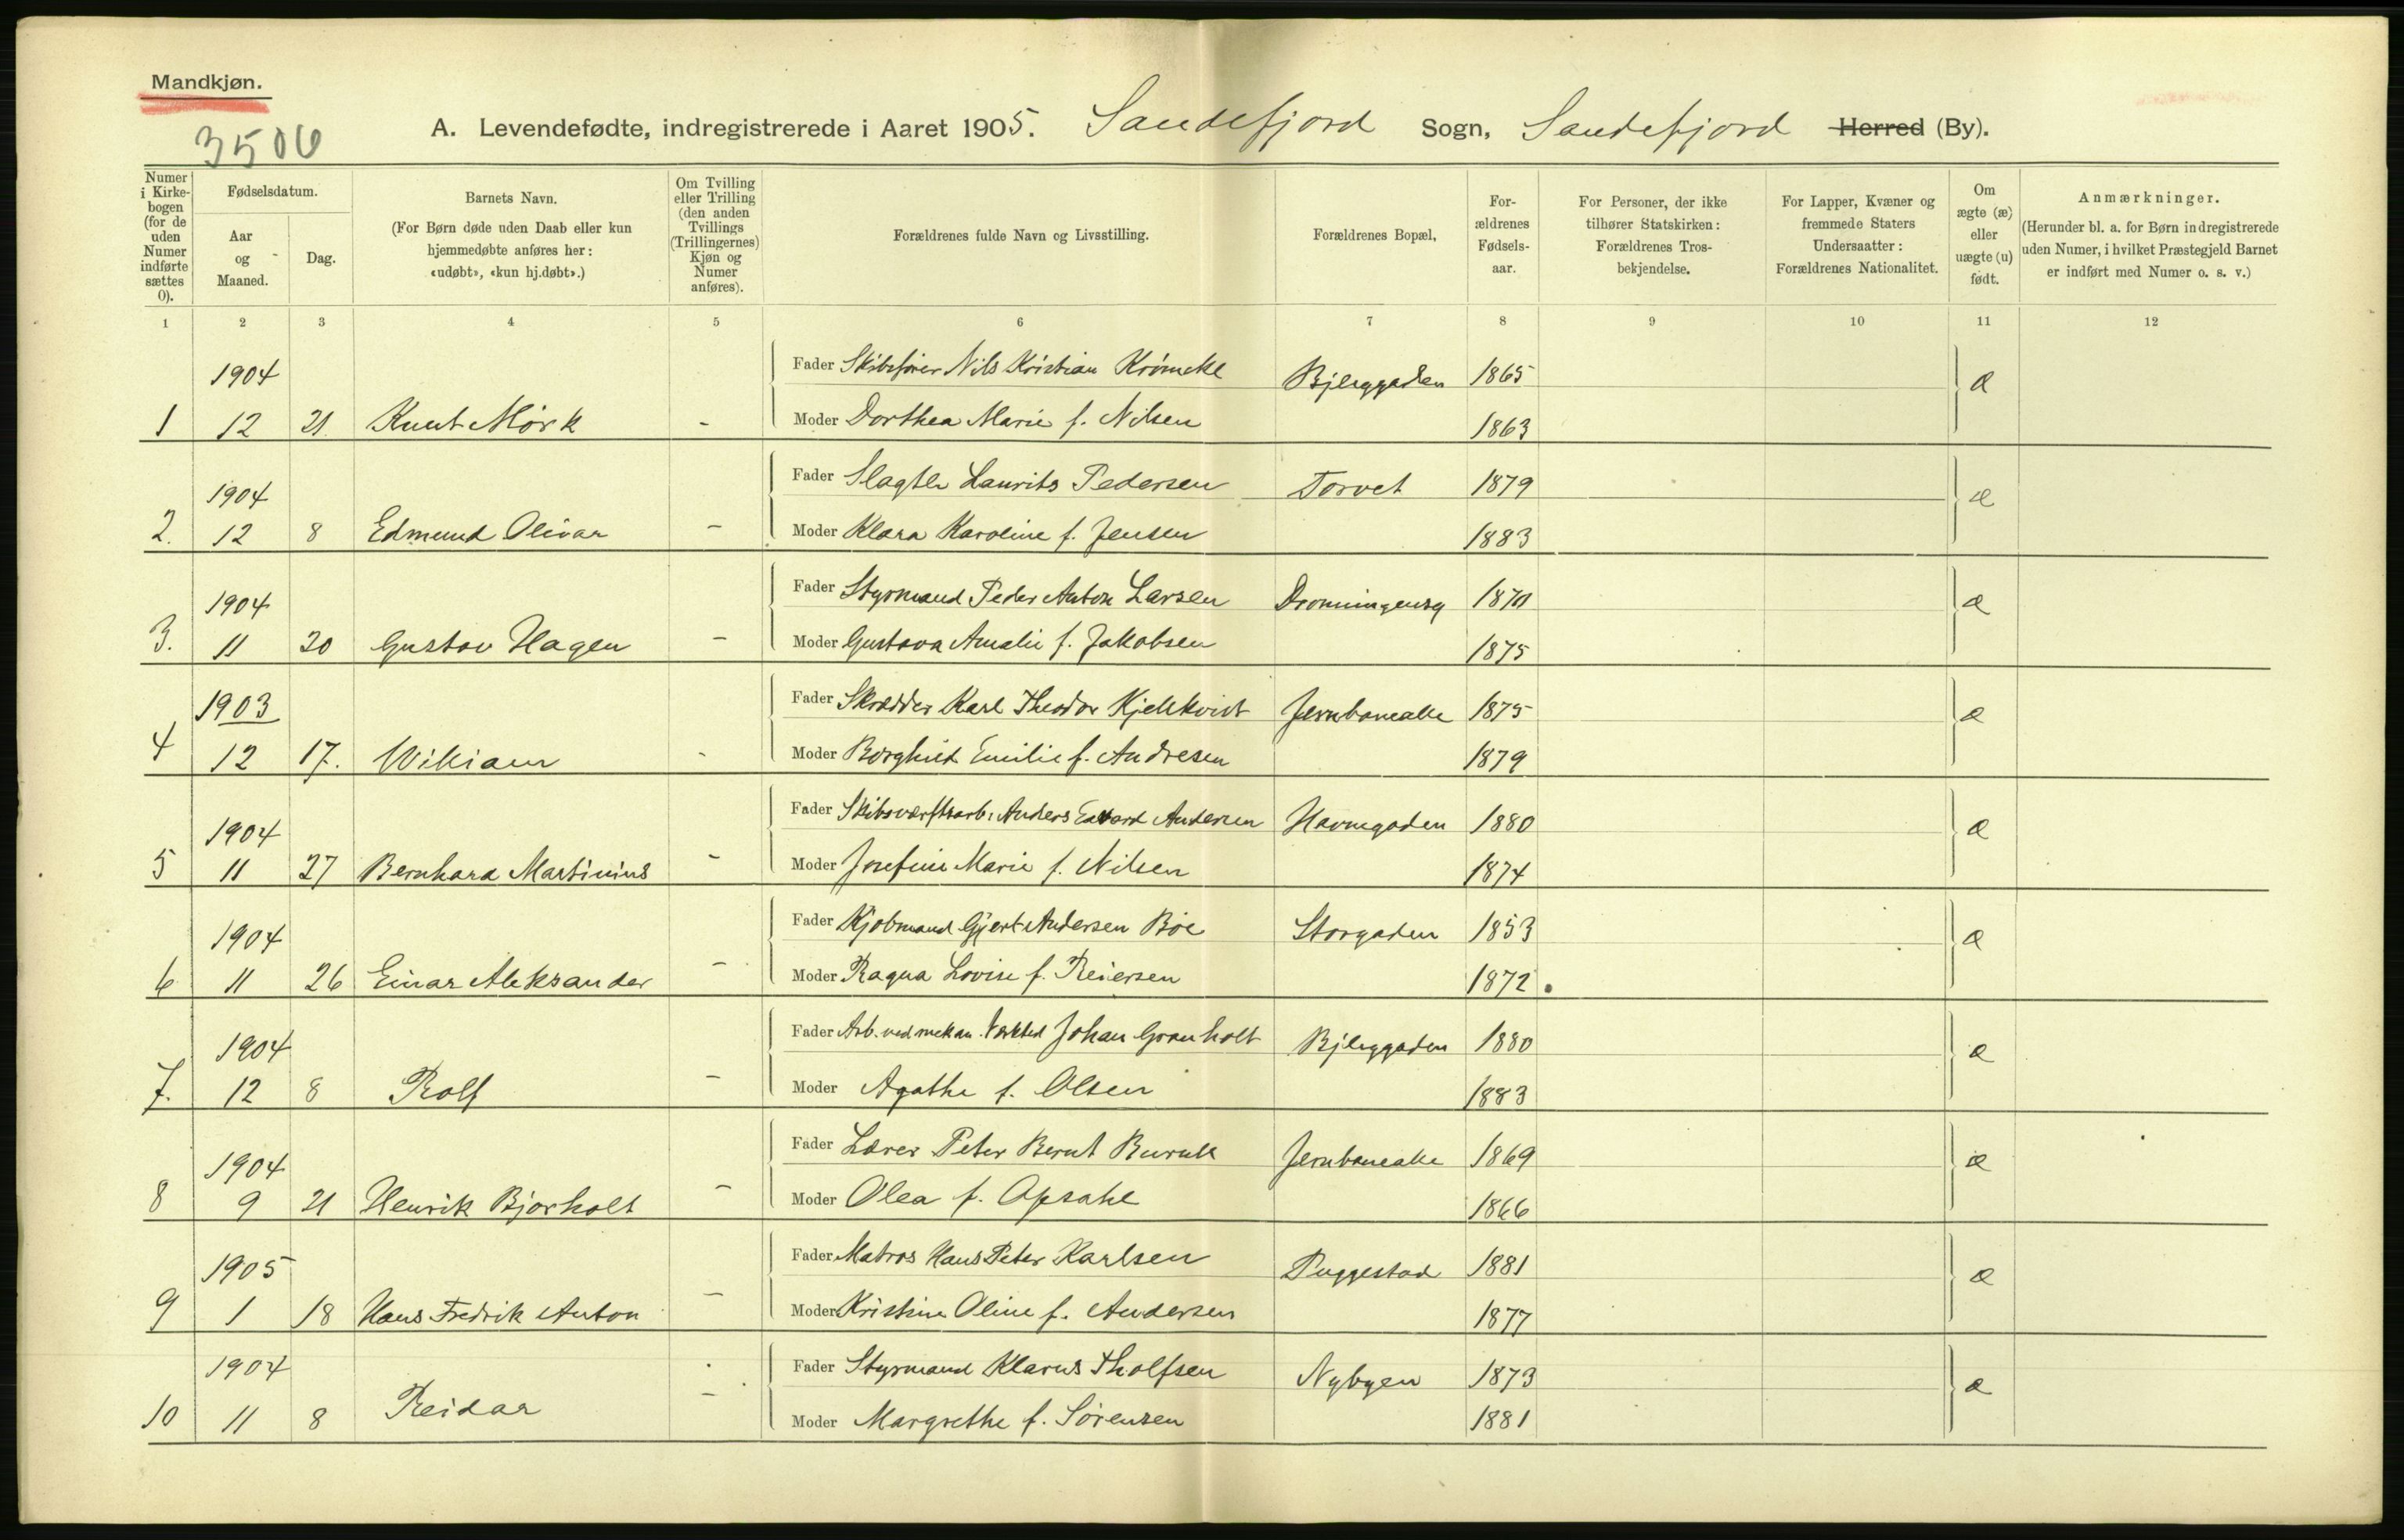 Mandkjøn.
3506
A. Levendefødte, indregistrerede i Aaret 1905. Sandefjord Sogn, Sandefjord Herred (By).
Numer i Kirkebogen (for de uden Numer indførte sættes 0).
Fødselsdatum.
Aar og Maaned.
Dag.
Barnets Navn.
(For Børn døde uden Daab eller kun hjemmedøbte anføres her: «udøbt», «kun hj.døbt».)
Om Tvilling eller Trilling (den anden Tvillings (Trillingernes) Kjøn og Numer anføres).
Forældrenes fulde Navn og Livsstilling.
Forældrenes Bopæl,
Forældrenes Fødselsaar.
For Personer, der ikke tilhører Statskirken: Forældrenes Trosbekjendelse.
For Lapper, Kvæner og fremmede Staters Undersaatter: Forældrenes Nationalitet.
Om ægte (æ) eller uægte (u) født.
Anmærkninger.
(Herunder bl. a. for Børn indregistrerede uden Numer, i hvilket Præstegjeld Barnet er indført med Numer o. s. v.)
1 2 3 4 5 6 7 8 9 10 11 12
1904 Fader Skibsfører Nils Kristian Bjerggaden 1865 æ
1 12 21. Knut Mørk - Moder Dorthea Marie f. Nilsen 1863
1904 Fader Slagter Laurits Pedersen Torvet 1879 æ
2. 12 8 Edmund Olivar - Moder Klara Karoline f. Jensen 1883
1904 Fader Styrmand Peder Anton Larsen Dronningensg æ
3. 11 20 Gustav Hagen - Moder Gustava Amalie f. Jakobsen 1875
1903 Fader Skrædder Karl Theodor Kjellkvist Jernbanealle 1875 æ
4 12 17. William - Moder Borghild Emilie f. Andresen 1879
1904 Fader Skibsværftsarb. Anders Edvard Andersen Havnegaden 1880 æ
5 11 27 Bernhard Martinius - Moder Josefine Marie f. Nilsen 1874
1904 Fader Kjøbmand Gjert Andersen Bøe Storgaden 1853 æ
6 11 26 Einar Aleksander - Moder Ragna Lovise f. Reiersen 1872.
1904 Fader Arb. ved mekan. Værksted Johan Granholt Bjerggaden 1880 æ
7. 12 8 Rolf - Moder Agathe f. Olsen 1883
1904 Fader Lærer Peter Bernt Jernbanealle 1869 æ
8 9 21 Henrik Bjorholt - Moder Olea f. Opsahl 1866
1905 Fader Matros Hans Peter Karlsen Puggestad 1881 æ
9 1 18 Hans Fredrik Anton - Moder Kristine Oline f. Andersen 1877
1904 Fader Styrmand Klarus Tholfsen Nybyen 1873 æ
10 11 8 Reidar - Moder Margrethe f. Sørensen 1881